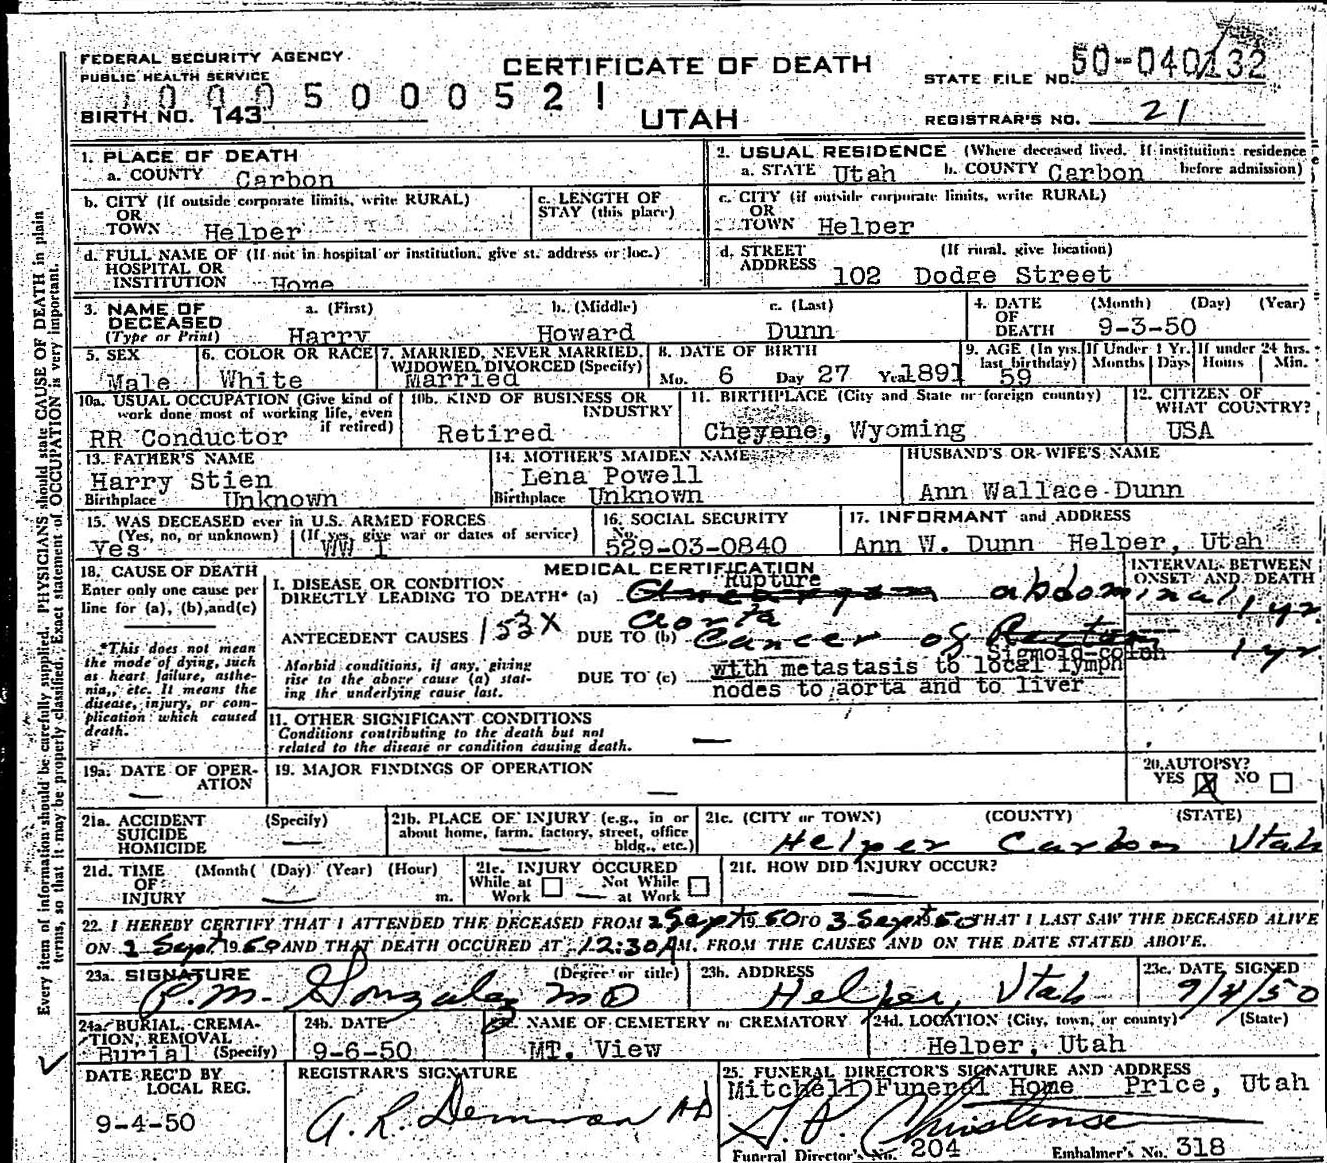 FEDERAL SECURITY AGENCY
PUBLIC HEALTH SERVICE
CERTIFICATE OF DEATH
UTAH
STATE FILE NO. 50-040132
1 0 0 0 5 0 0 0 5 2 1
BIRTH NO. 143
REGISTRAR'S NO. 21
1. PLACE OF DEATH
a. COUNTY Carbon
2. USUAL RESIDENCE (Where deceased lived. If institution: residence before admission)
a. STATE Utah b. COUNTY Carbon
b. CITY (If outside corporate limits, write RURAL)
OR
TOWN Helper
c. LENGTH OF
STAY (this place)
c. CITY (if outside corporate limits, write RURAL)
OR
TOWN Helper
d. FULL NAME OF (If not in hospital or institution, give st. address or loc.)
HOSPITAL OR
INSTITUTION Home
d. STREET (If rural, give location)
ADDRESS 102 Dodge Street
3. NAME OF DECEASED (Type or Print)
a. (First) b. (Middle) c. (Last)
Harry Howard Dunn
4. DATE OF DEATH (Month) (Day) (Year)
9-3-50
5. SEX
Male
6. COLOR OR RACE
White
7. MARRIED, NEVER MARRIED,
WIDOWED, DIVORCED (Specify)
Married
8. DATE OF BIRTH
Mo. 6 Day 27 Year 1891
9. AGE (In yrs. last birthday) If Under 1 Yr. If under 24 hrs.
59 Months Days Hours Min.
10a. USUAL OCCUPATION (Give kind of
work done most of working life, even
if retired)
RR Conductor
10b. KIND OF BUSINESS OR
INDUSTRY
Retired
11. BIRTHPLACE (City and State or foreign country)
Cheyene, Wyoming
12. CITIZEN OF
WHAT COUNTRY?
USA
13. FATHER'S NAME
Harry Stien
Birthplace Unknown
14. MOTHER'S MAIDEN NAME
Lena Powell
Birthplace Unknown
HUSBAND'S OR WIFE'S NAME
Ann Wallace Dunn
15. WAS DECEASED ever in U.S. ARMED FORCES
(Yes, no, or unknown) (If yes, give war or dates of service)
Yes WW I
16. SOCIAL SECURITY
No.
529-03-0840
17. INFORMANT and ADDRESS
Ann W. Dunn Helper, Utah
18. CAUSE OF DEATH
Enter only one cause per
line for (a), (b), and (c)
*This does not mean
the mode of dying, such
as heart failure, asthe-
nia, etc. It means the
disease, injury, or com-
plication which caused
death.
MEDICAL CERTIFICATION
INTERVAL BETWEEN
ONSET AND DEATH
I. DISEASE OR CONDITION
DIRECTLY LEADING TO DEATH* (a) Rupture abdominal 1 yr.
aorta
ANTECEDENT CAUSES 153X DUE TO (b) Cancer of Rectum 1 yr
Sigmoid-colon
Morbid conditions, if any, giving
rise to the above cause (a) stat-
ing the underlying cause last.
DUE TO (c) with metastasis to local lymph
nodes to aorta and to liver
11. OTHER SIGNIFICANT CONDITIONS
Conditions contributing to the death but not
related to the disease or condition causing death. —
19a. DATE OF OPER-
ATION —
19. MAJOR FINDINGS OF OPERATION
—
20. AUTOPSY?
YES X NO
21a. ACCIDENT (Specify)
SUICIDE
HOMICIDE —
21b. PLACE OF INJURY (e.g., in or
about home, farm, factory, street, office
bldg., etc.) —
21c. (CITY or TOWN) (COUNTY) (STATE)
Helper Carbon Utah
21d. TIME (Month( (Day) (Year) (Hour)
OF
INJURY — m.
21e. INJURY OCCURED
While at Work — Not While at Work
21f. HOW DID INJURY OCCUR?
—
22. I HEREBY CERTIFY THAT I ATTENDED THE DECEASED FROM 2 Sept 1950 TO 3 Sept 1950 THAT I LAST SAW THE DECEASED ALIVE
ON 2 Sept 1950 AND THAT DEATH OCCURED AT 12:30 A M. FROM THE CAUSES AND ON THE DATE STATED ABOVE.
23a. SIGNATURE (Degree or title)
P.M. Gonzalez MD
23b. ADDRESS
Helper, Utah
23c. DATE SIGNED
9/4/50
24a. BURIAL, CREMA-
TION, REMOVAL
Burial (Specify)
24b. DATE
9-6-50
NAME OF CEMETERY or CREMATORY
MT. View
24d. LOCATION (City, town, or county) (State)
Helper, Utah
DATE REC'D BY
LOCAL REG.
9-4-50
REGISTRAR'S SIGNATURE
A. R. Demman MD
25. FUNERAL DIRECTOR'S SIGNATURE AND ADDRESS
Mitchell Funeral Home Price, Utah
Funeral Director's No. 204 Embalmer's No. 318
Every item of information should be carefully supplied. PHYSICIANS should state CAUSE OF DEATH in plain
terms, so that it may be properly classified. Exact statement of OCCUPATION is very important.